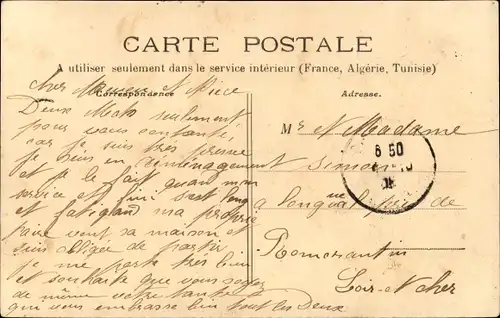 CARTE POSTALE
A utiliser seulement dans le service intérieur (France, Algérie, Tunisie)
Correspondance
Adresse.
cher et Nièce
Deux Mots seulement
pour vous
car je suis très
je suis en déménagement
et je le fait quand mon
service est fini c'est long
et fatigand ma
vent sa maison et
suis obligée de partir
je me porte très bien
et souhaite que vous soyez
de même votre tante
qui vous embrasse bien tout les Deux
Mr et Madame
Simon
à
Romorantin
Loir-et-cher
6 50